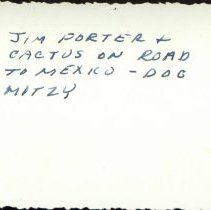 JIM PORTER +
CACTUS ON ROAD
TO MEXICO - DOG
MITZY